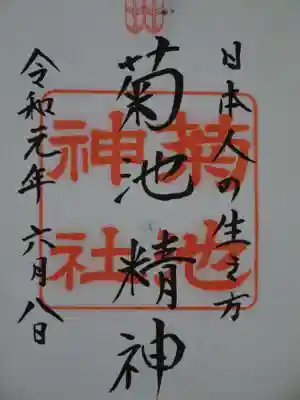 日本人の生き方
菊池精神
令和元年六月八日
菊池
神社